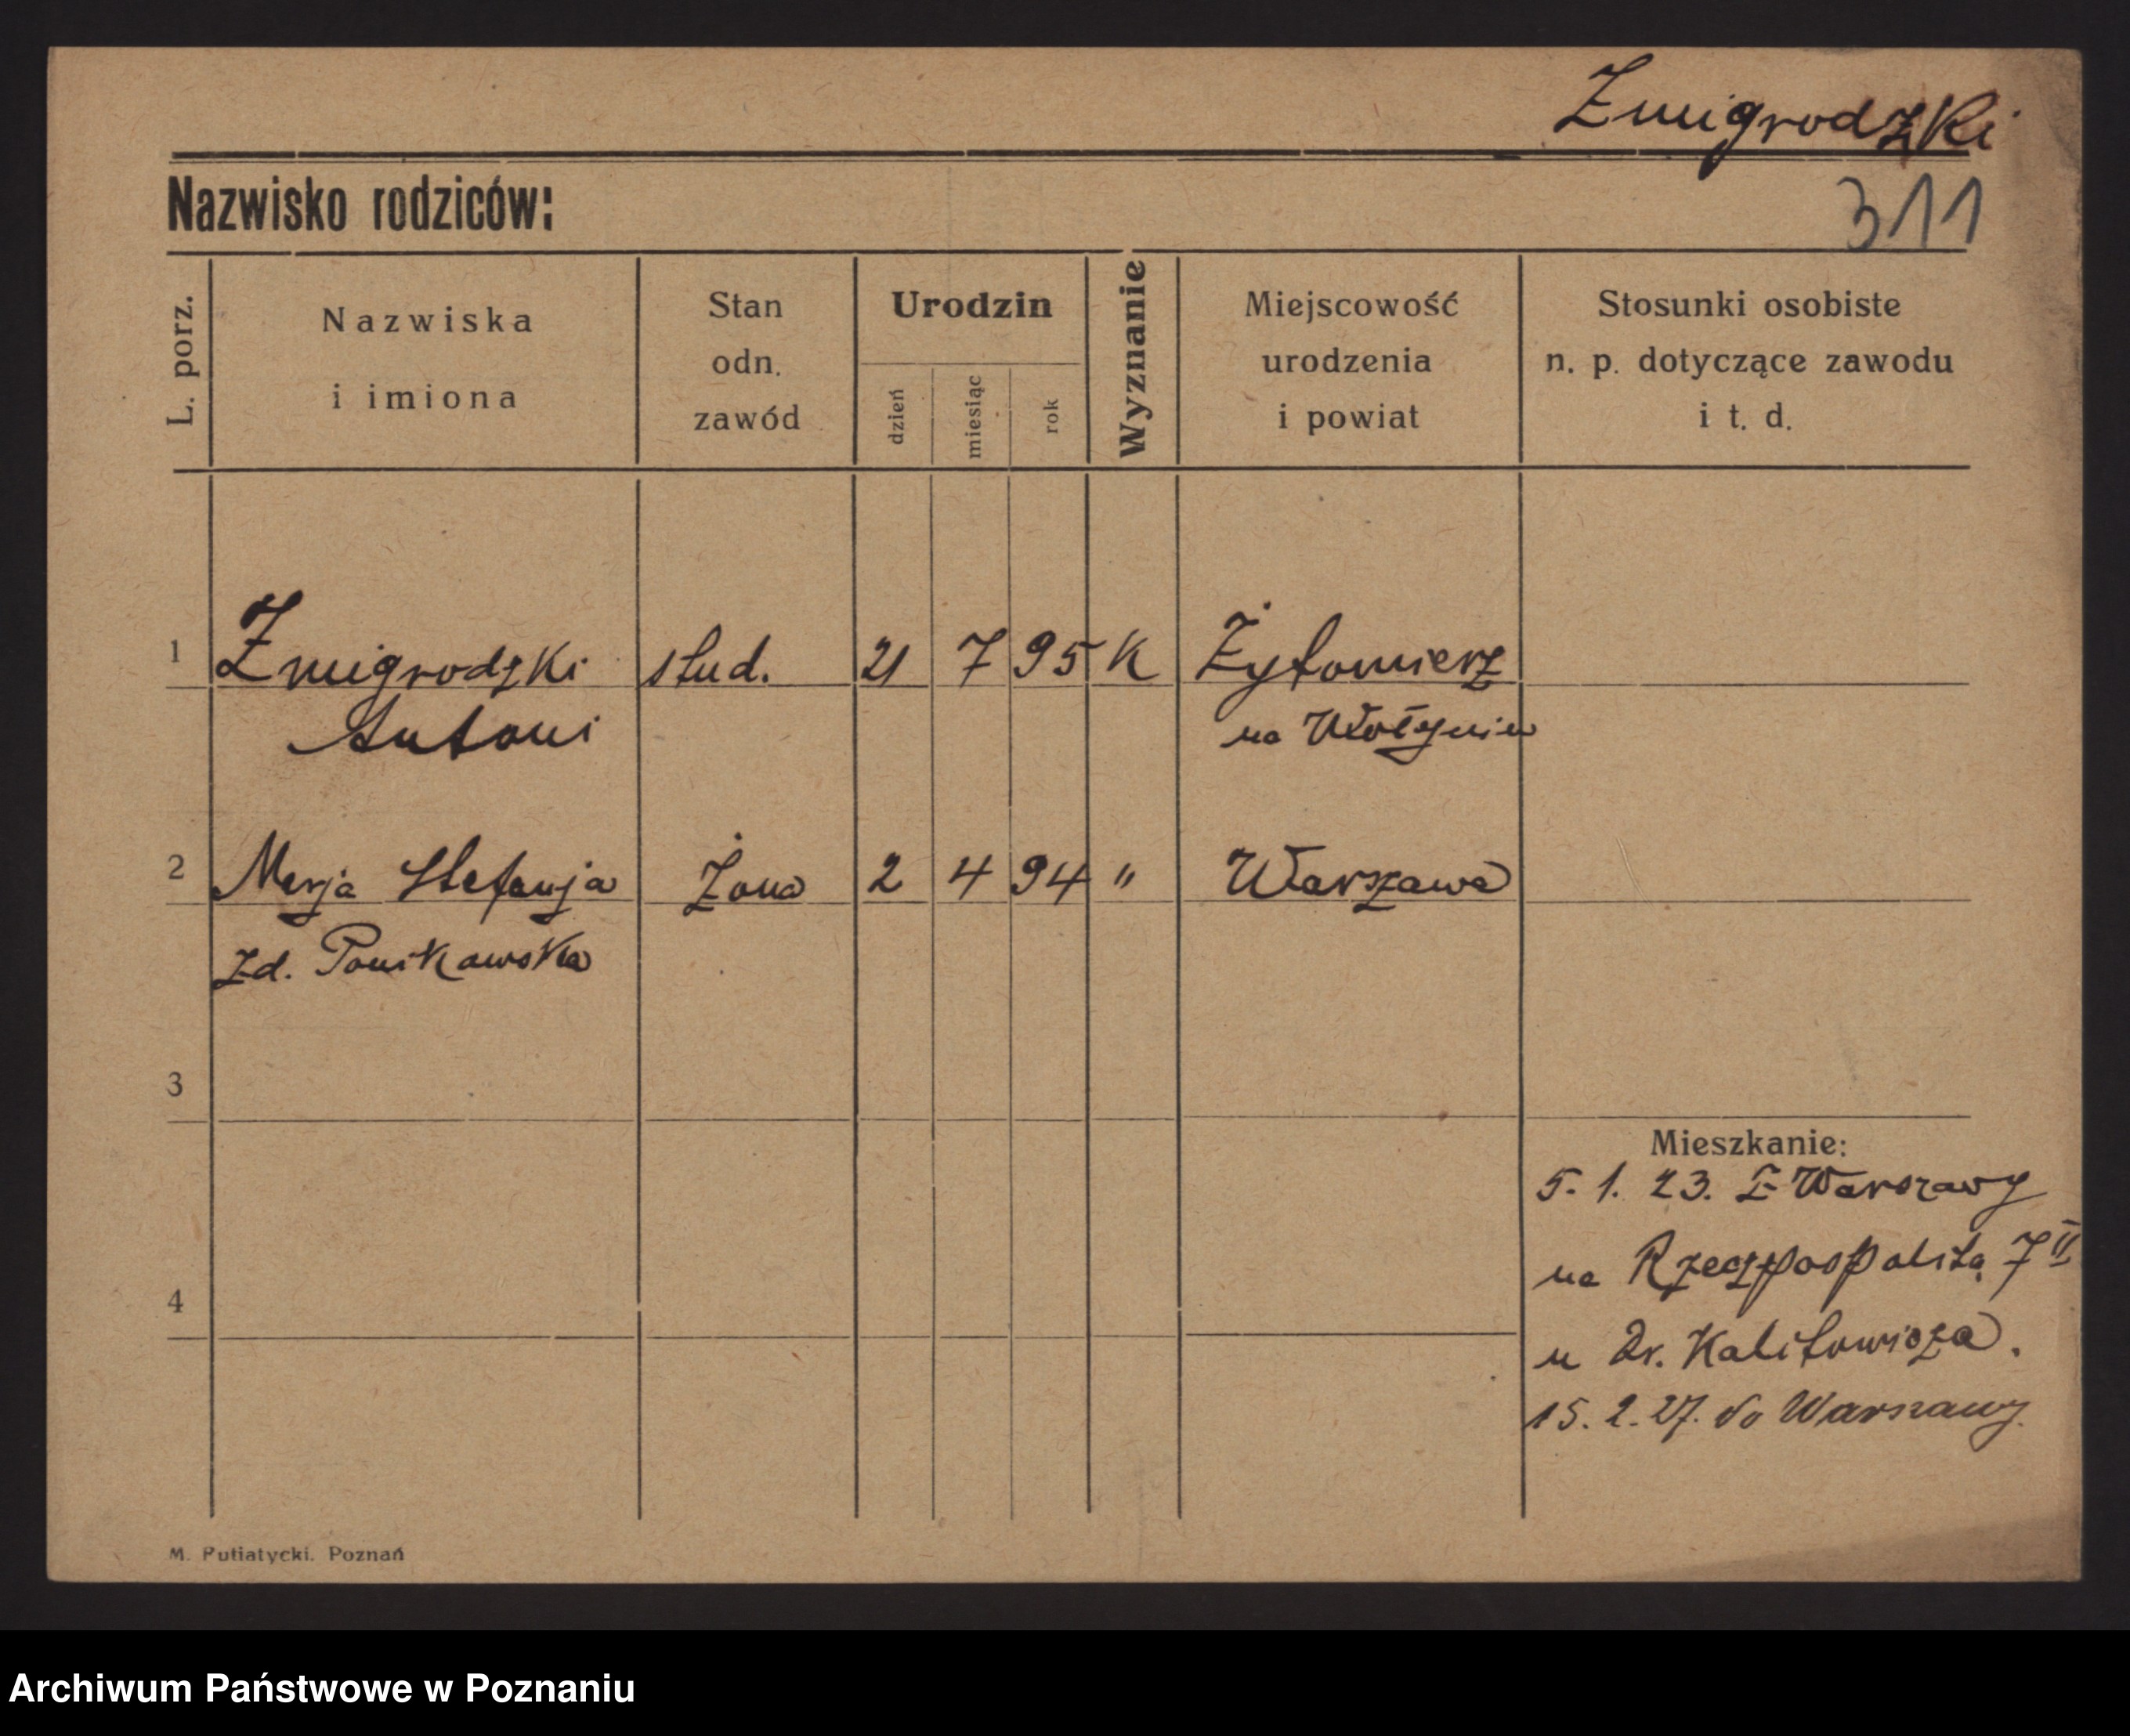 Zmigrodzki
Nazwisko rodziców:
311
L. porz.
Nazwiska
i imiona
Stan
odn.
zawód
Urodzin
dzień
miesiąc
rok
Wyznanie
Miejscowość
urodzenia
i powiat
Stosunki osobiste
n. p. dotyczące zawodu
i t. d.
1 Zmigrodzki stud. 21 7 95 K Żytomierz
Antoni na Wołyniu
2 Marja Stefanja Żona 2 4 94 " Warszawa
zd. Ponikowska
3
Mieszkanie:
5. 1. 23. z Warszawy
na Rzeczpospolitą 7 II
4
u Dr. Kalitowicza.
15. 2. 27. do Warszawy.
M. Putiatycki. Poznań
Archiwum Państwowe w Poznaniu